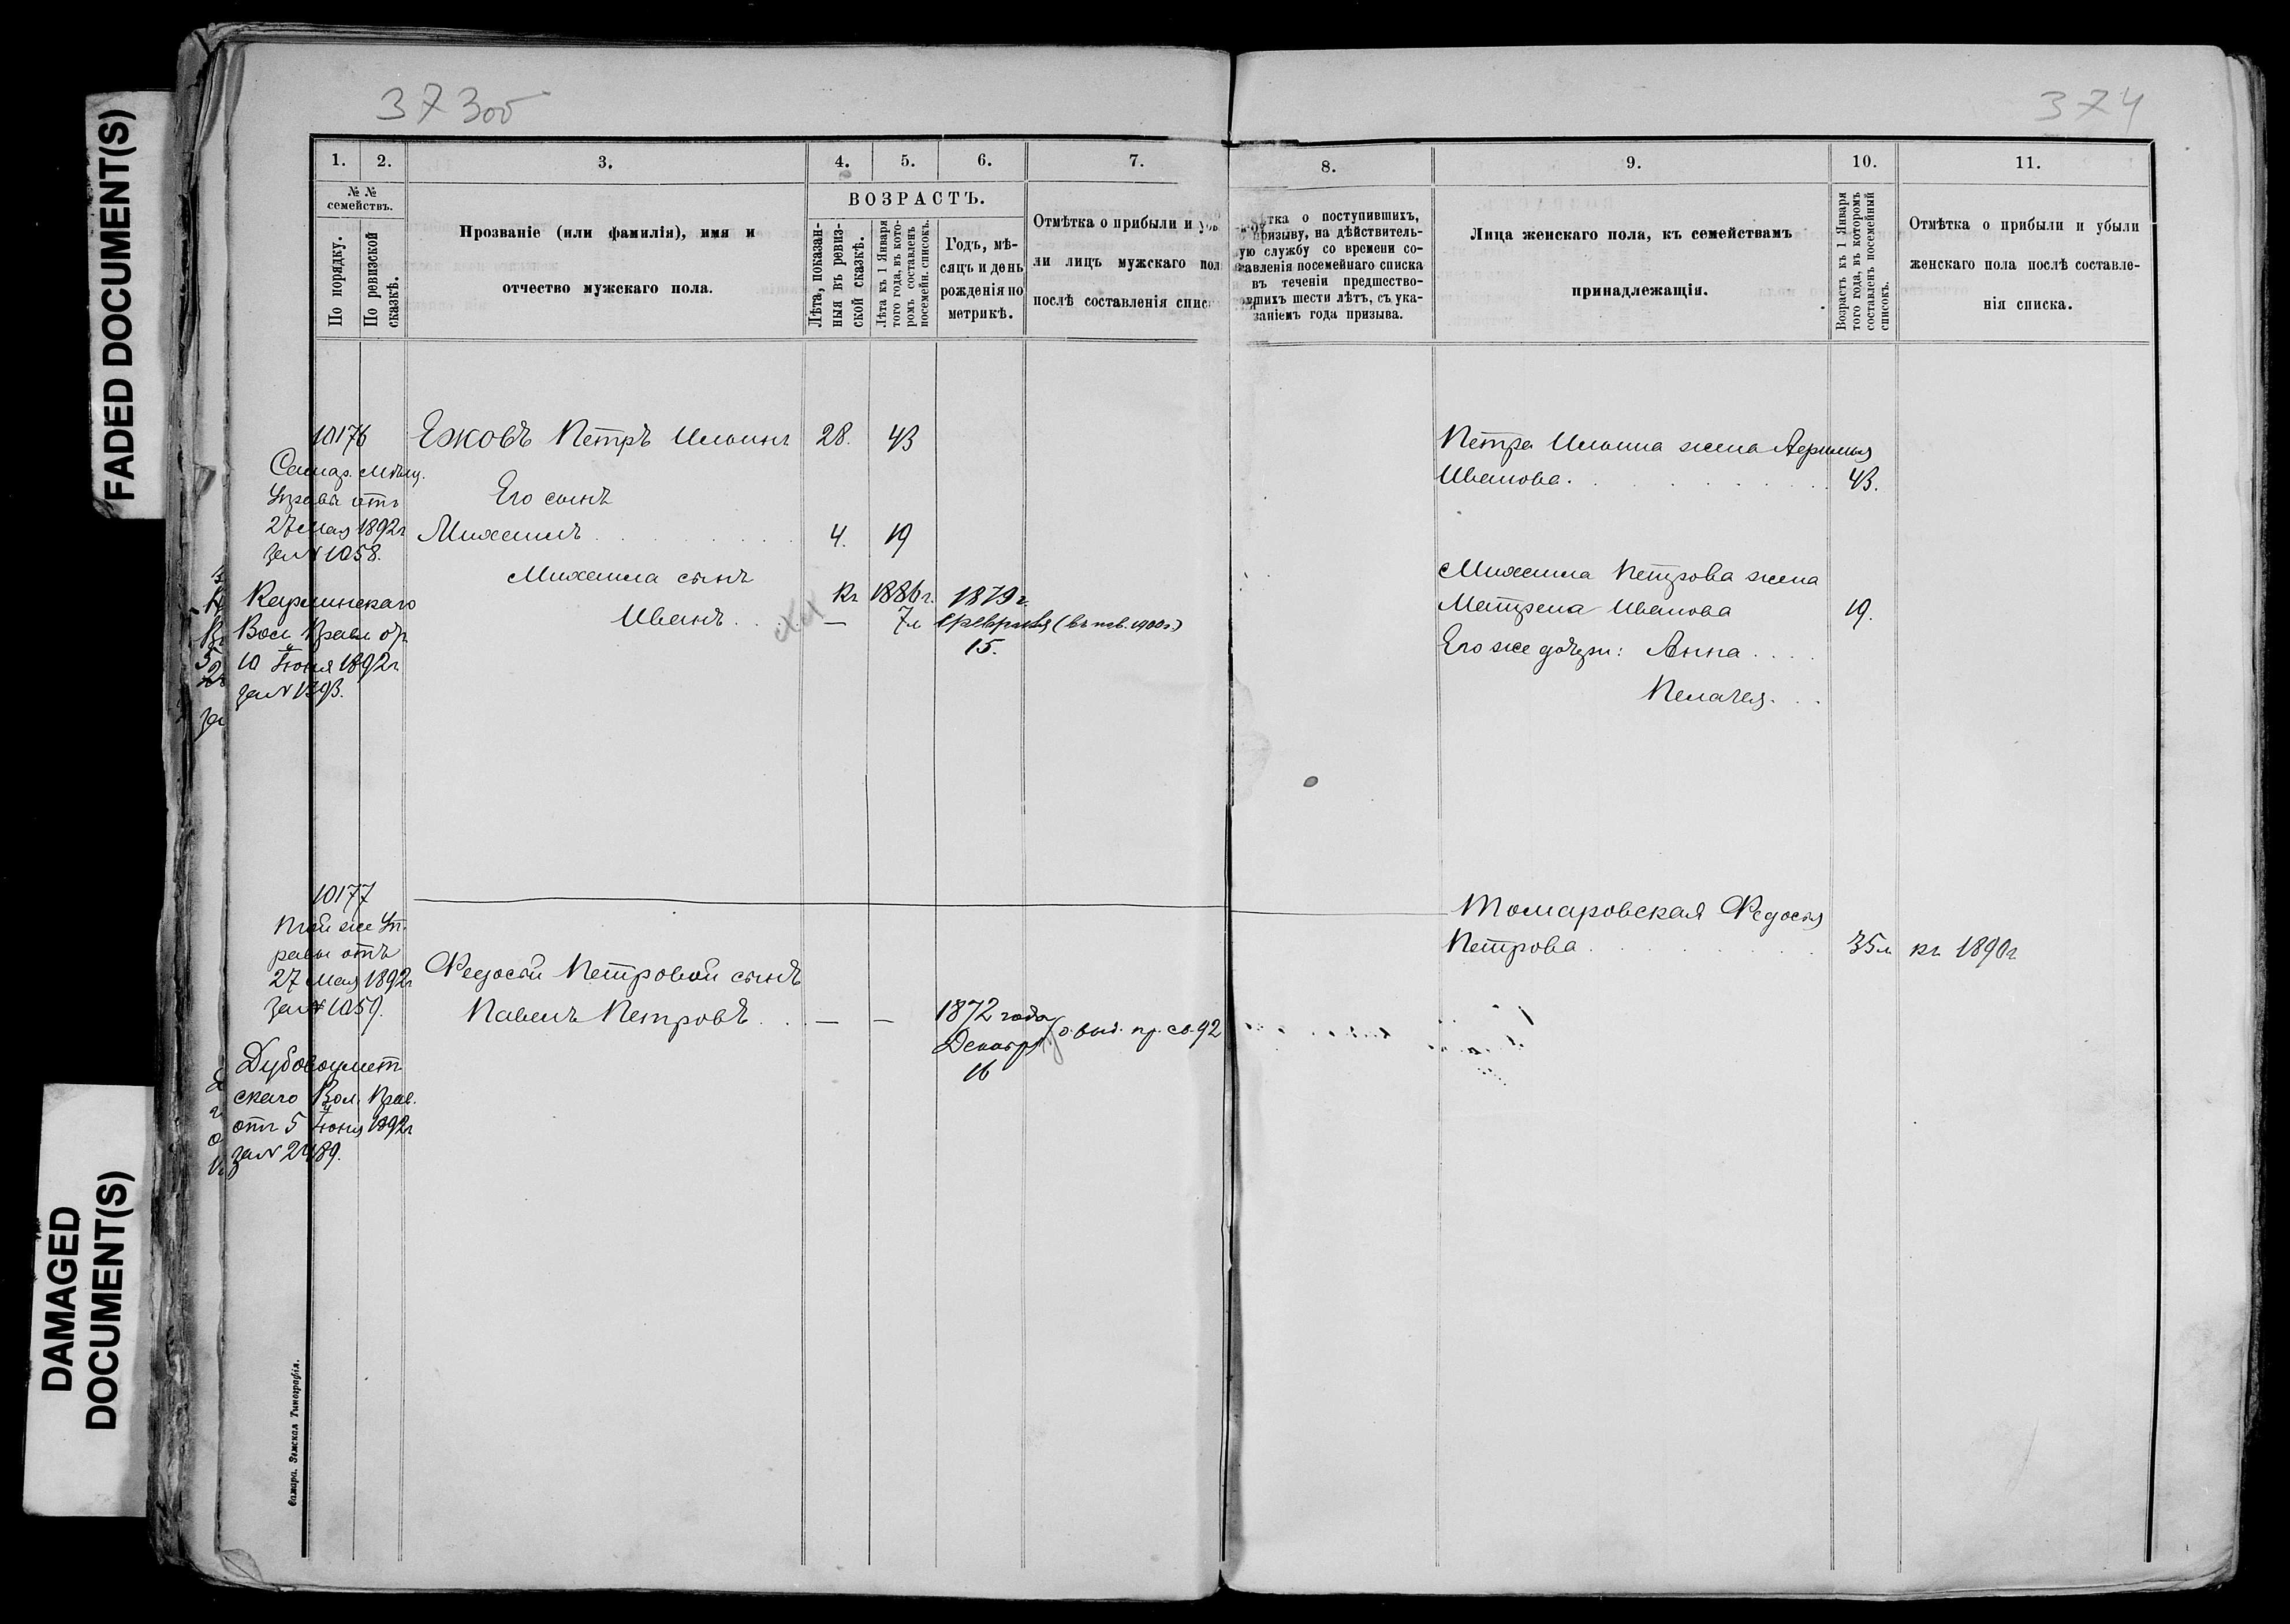 FADED DOCUMENT(S)
DAMAGED
DOCUMENT(S)
373об
1.
2.
3.
4.
5.
6.
7.
№ №
семействъ.
По порядку.
По ревизской
сказкѣ.
Прозваніе (или фамилія), имя и
отчество мужскаго пола.
ВОЗРАСТЪ.
Лѣта, показан-
ныя въ ревиз-
ской сказкѣ.
Лѣта къ 1 Января
того года, въ кото-
ромъ составленъ
посемейн. списокъ.
Годъ, мѣ-
сяцъ и день
рожденія по
метрикѣ.
Отмѣтка о прибыли и
ли лицъ мужскаго пол
послѣ составленія спис
10176
Самар. Мѣщ.
Управы отъ
27 Мая 1892г
за № 1058.
Карлинскаго
Вол. Правл. от
10 Іюня 1892г
за № 1393.
Ежовъ Петръ Ильинъ 28. 43
Его сынъ
Михаилъ . . . 4. 19
Михаила сынъ
Иванъ . . .
къ 1886г. 1879г.
— 7л Февраля (въ пв. 1900г.)
15.
10177
Той же Уп-
равы отъ
27 Мая 1892г
за № 1059.
Дубовоумет
скаго Вол. Прав.
отъ 5 Іюня 1892г
за № 2489.
Федосьи Петровой сынъ
Павелъ Петровъ . . — —
1872 года
Декабря
16
о выд. пр. св. 92
Самара. Земская Типографія.
374
8.
9.
10.
11.
тка о поступившихъ,
призыву, на дѣйствитель-
ую службу со времени со-
тавленія посемейнаго списка
въ теченіи предшество-
вшихъ шести лѣтъ, съ ука-
заніемъ года призыва.
Лица женскаго пола, къ семействамъ
принадлежащія.
Возрастъ къ 1 Января
того года, въ которомъ
составленъ посемейный
списокъ.
Отмѣтка о прибыли и убыли
женскаго пола послѣ составле-
нія списка.
Петра Ильина жена
Иванова . . . 43.
Михаила Петрова жена
Матрена Иванова 19.
Его же дочери: Анна . . .
Пелагея . . .
Томаровская Федосья
Петрова . . . 35л къ 1890г